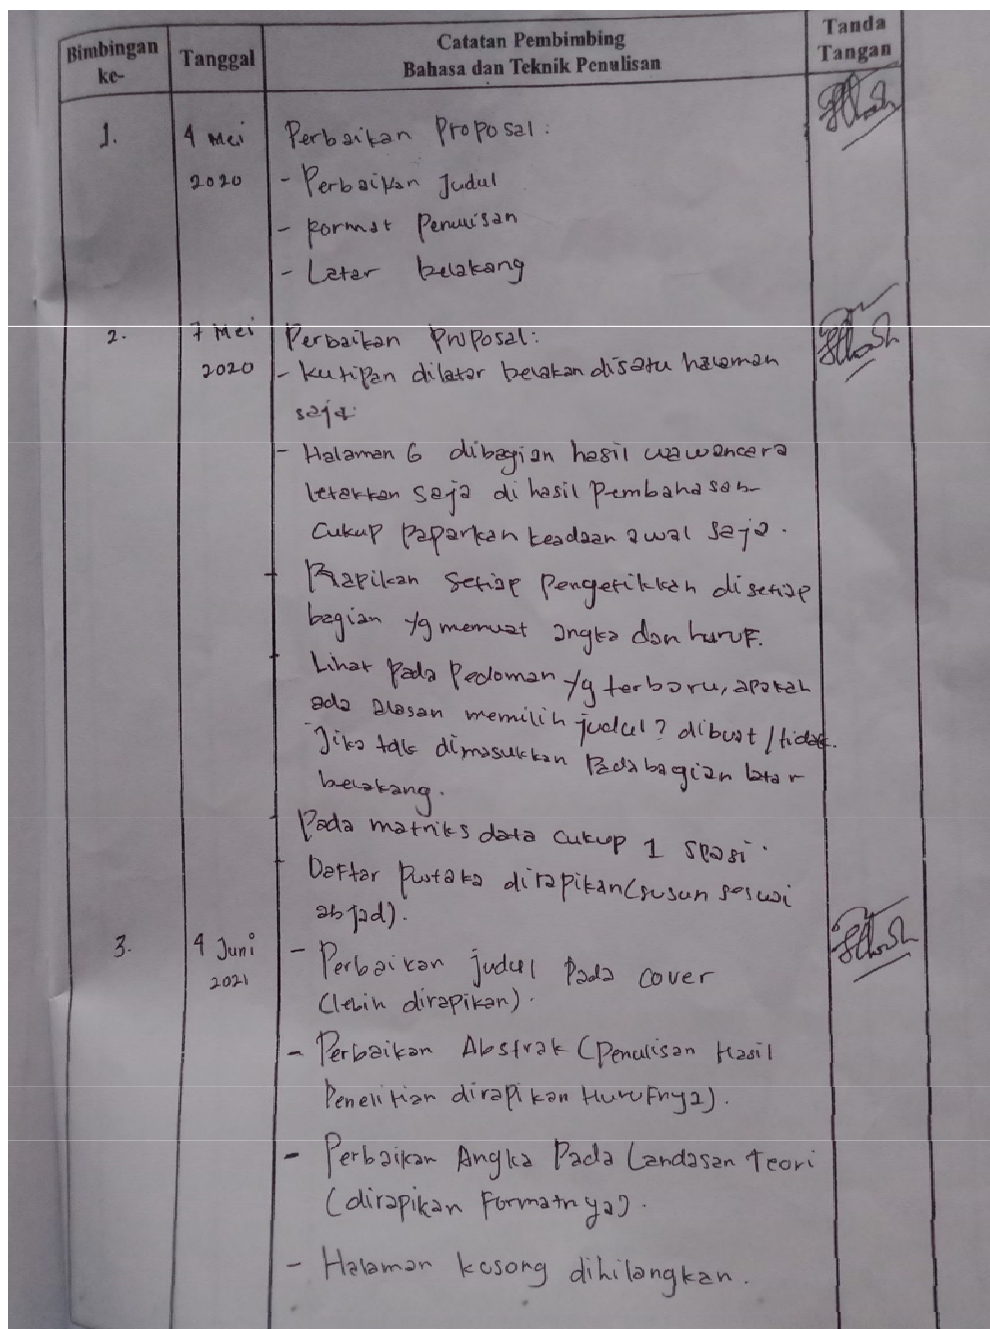 Bimbingan ke-
Tanggal
Catatan Pembimbing
Bahasa dan Teknik Penulisan
Tanda Tangan
1.
4 Mei
2020
Perbaikan Proposal :
- Perbaikan Judul
- Format Penulisan
- Latar belakang
2.
7 Mei
2020
Perbaikan Proposal:
- Kutipan dilatar belakan disatu halaman
saja.
- Halaman 6 dibagian hasil wawancara
letakkan saja di hasil pembahasan
cukup paparkan keadaan awal saja.
- Rapikan setiap pengetikkan disetiap
bagian yg memuat angka dan huruf.
- Lihat pada Pedoman yg terbaru, apakah
ada alasan memilih judul? dibuat/tidak.
Jika tdk dimasukkan pada bagian latar
belakang.
- Pada matriks data cukup 1 spasi.
- Daftar Pustaka dirapikan(susun sesuai
abjad).
3.
4 Juni
2021
- Perbaikan judul Pada cover
(lebih dirapikan).
- Perbaikan Abstrak (Penulisan Hasil
Penelitian dirapikan Hurufnya).
- Perbaikan Angka Pada Landasan Teori
(dirapikan Formatnya).
- Halaman kosong dihilangkan.